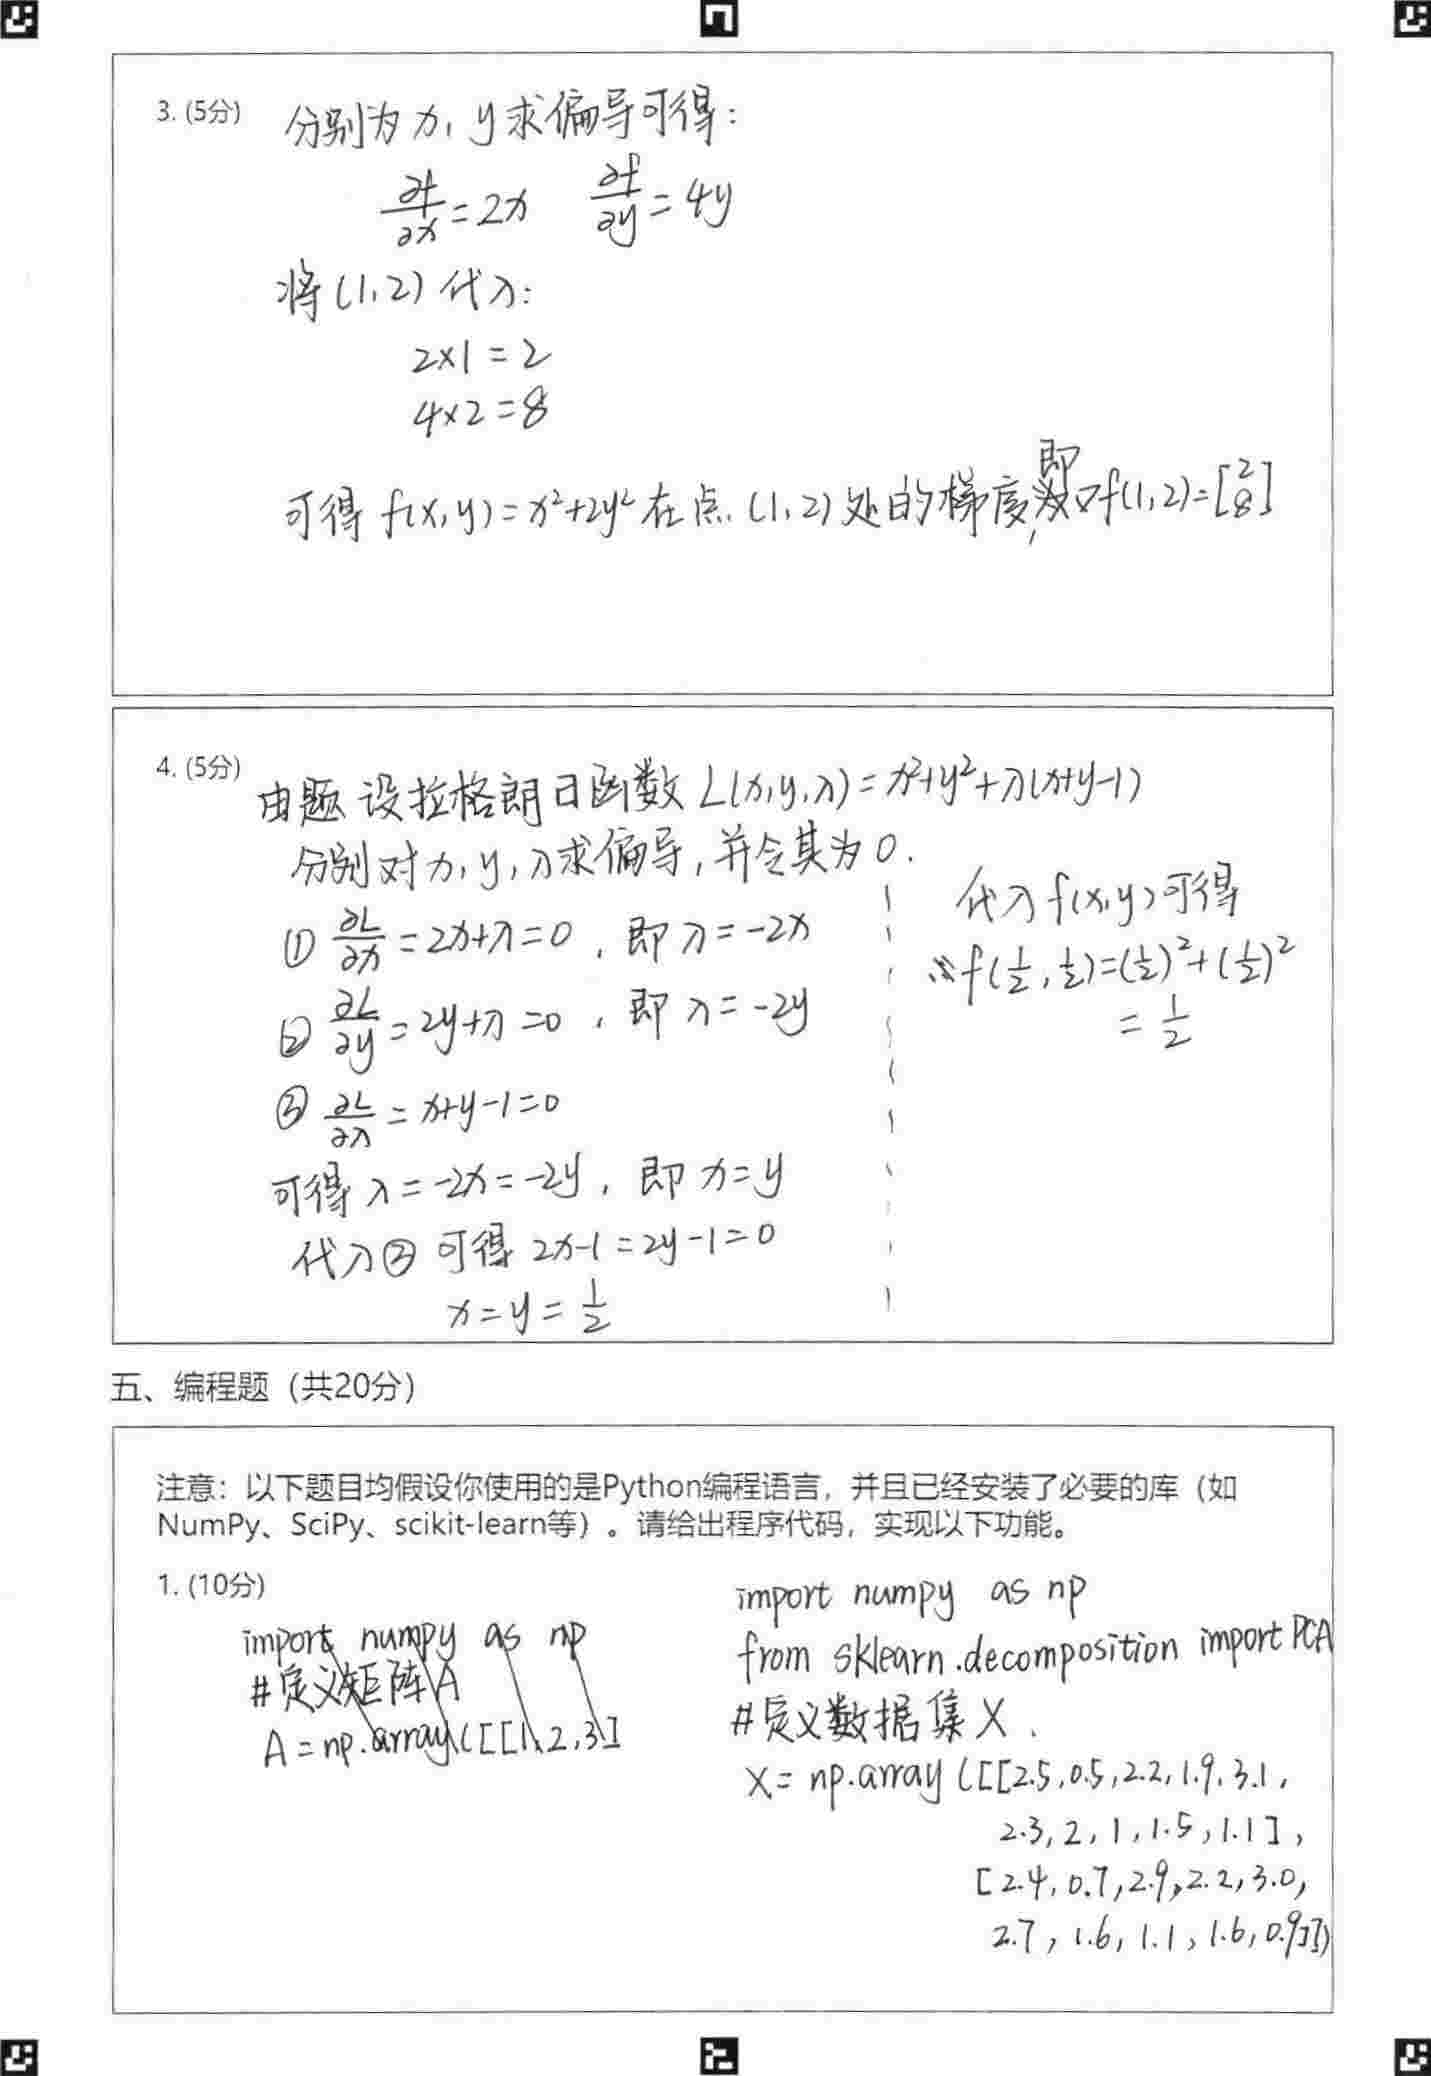 3. (5分) 分别为x,y求偏导可得:
∂f/∂x=2x ∂f/∂y=4y
将(1,2)代入:
2×1=2
4×2=8
可得f(x,y)=x²+2y²在点(1,2)处的梯度,即▽f(1,2)=[2 8]
4. (5分) 由题设拉格朗日函数L(x,y,λ)=x²+y²+λ(x+y-1)
分别对x,y,λ求偏导,并令其为0.
① ∂L/∂x=2x+λ=0,即λ=-2x
② ∂L/∂y=2y+λ=0,即λ=-2y
③ ∂L/∂λ=x+y-1=0
可得λ=-2x=-2y,即x=y
代入③可得2x-1=2y-1=0
x=y=1/2
代入f(x,y)可得
f(1/2,1/2)=(1/2)²+(1/2)²
=1/2
五、编程题(共20分)
注意:以下题目均假设你使用的是Python编程语言,并且已经安装了必要的库(如
NumPy、SciPy、scikit-learn等)。请给出程序代码,实现以下功能。
1. (10分)
import numpy as np
#定义矩阵A
A=np.array([[1,2,3]
import numpy as np
from sklearn.decomposition import PCA
#定义数据集X.
X=np.array([[2.5,0.5,2.2,1.9,3.1,
2.3,2,1,1.5,1.1],
[2.4,0.7,2.9,2.2,3.0,
2.7,1.6,1.1,1.6,0.9]])